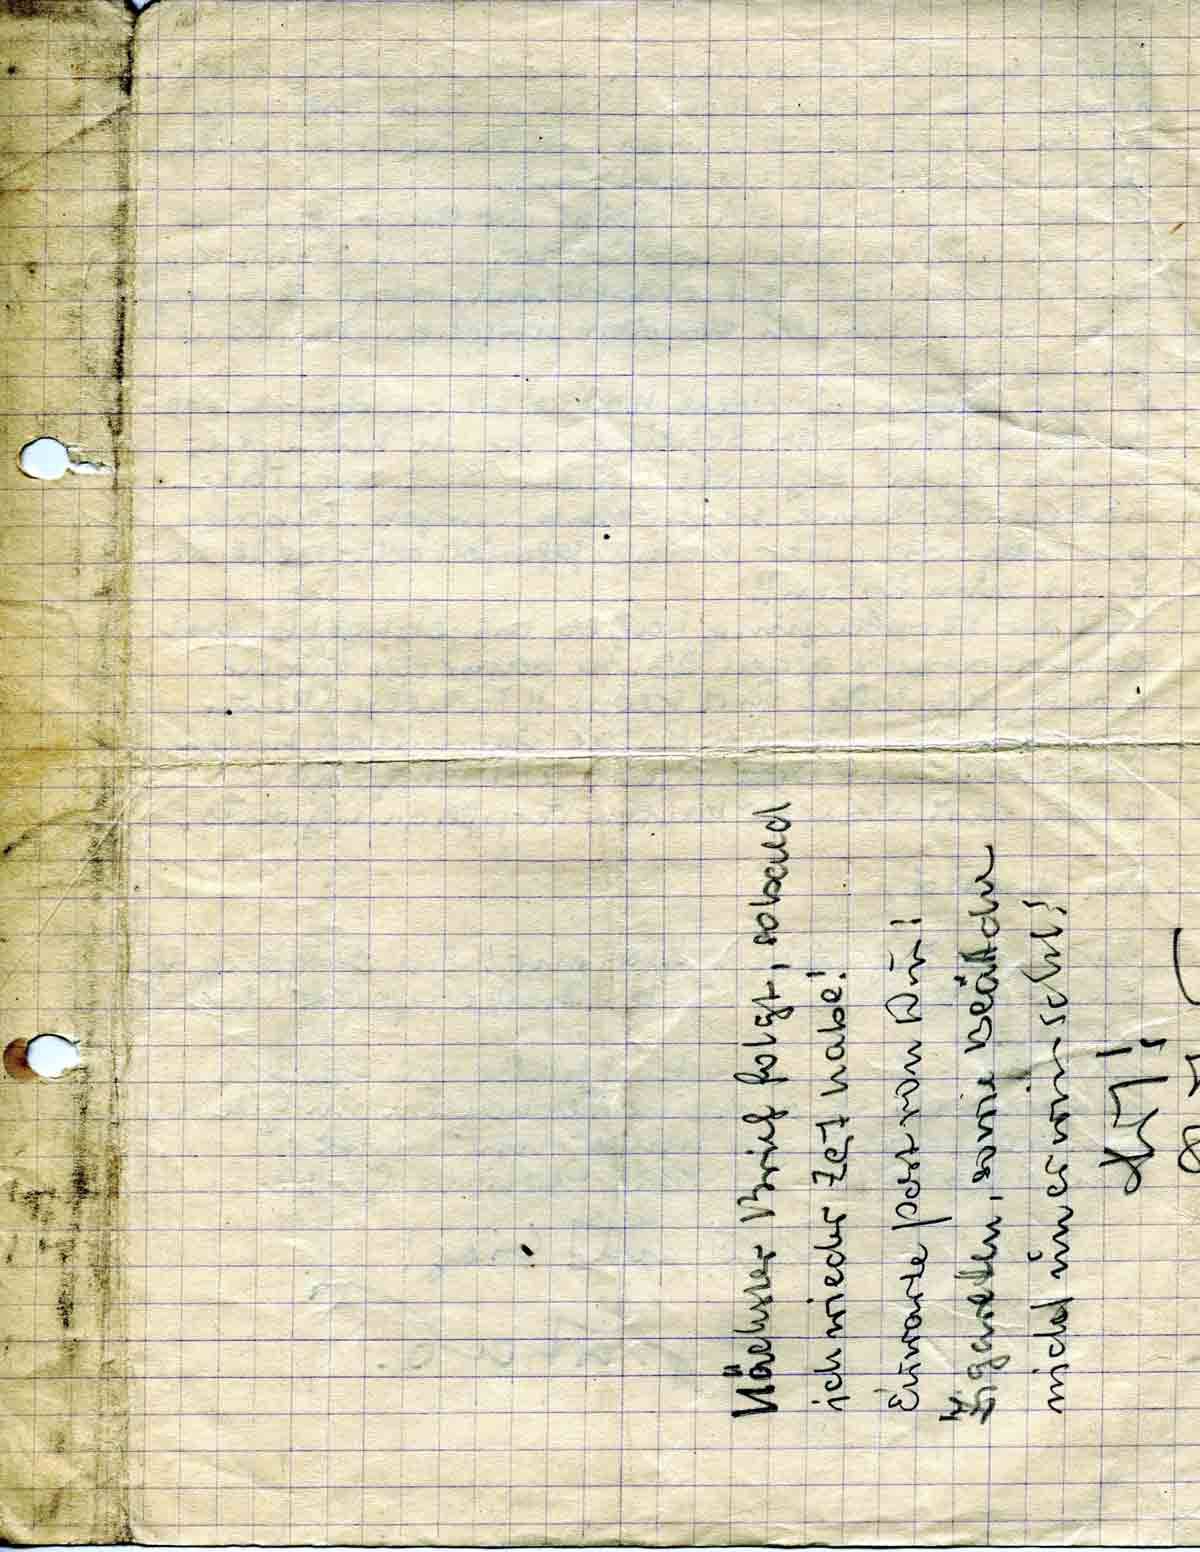 Nächster Brief folgt, sobald
ich wieder Zeit habe!
Erwarte post von Dir!
Zigaretten, sowie Blättchen
nicht unerwünscht!